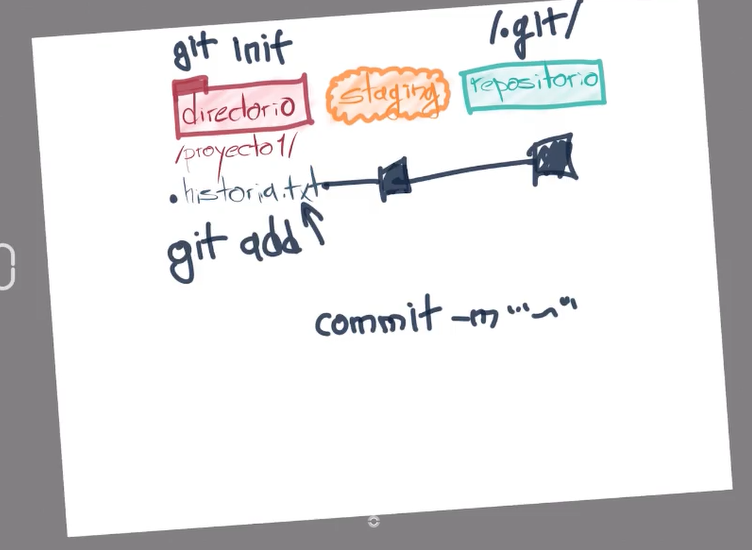 git init
/.git/
directorio
staging
repositorio
/proyecto1/
.historia.txt
git add
commit -m